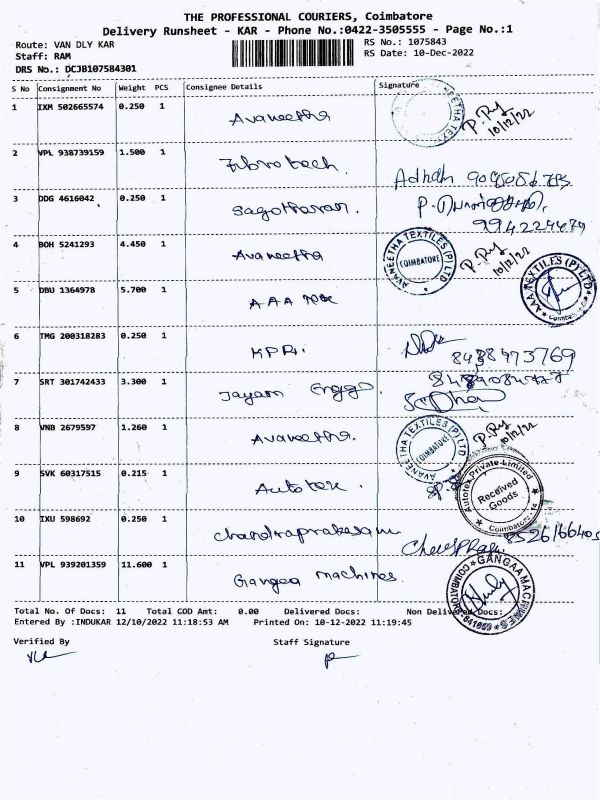 THE PROFESSIONAL COURIERS, Coimbatore
Delivery Runsheet - KAR - Phone No.:0422-3505555 - Page No.:1
Route: VAN DLY KAR
RS No.: 1075843
Staff: RAM
RS Date: 10-Dec-2022
DRS No.: DCJB107584301
S No Consignment No Weight PCS Consignee Details Signature
1 IXM 502665574 0.250 1 Avaneetha P. 10/12/22
2 VPL 938739159 1.500 1 Fibrotech.
3 DDG 4616042 0.250 1
4 BOH 5241293 4.450 1 Avaneetha AVANEETHA TEXTILES (P) LTD COIMBATORE P. 10/12/22
5 DBU 1364978 5.700 1 AAA AAA TEXTILES (P) LTD
6 TMG 200318283 0.250 1 KPR. 8438973769
7 SRT 301742433 3.300 1 Jayam
8 VNB 2679597 1.260 1 Avaneetha. AVANEETHA TEXTILES (P) LTD COIMBATORE P. 10/12/22
9 SVK 60317515 0.215 1 Autotex. Autotex Private Limited Received Goods Coimbatore
10 IXU 598692 0.250 1 Chandraprakasam
11 VPL 939201359 11.600 1 Gangaa Machines. GANGAA MACHINES COIMBATORE
Total No. Of Docs: 11 Total COD Amt: 0.00 Delivered Docs: Non Delivered Docs:
Entered By :INDUKAR 12/10/2022 11:18:53 AM Printed On: 10-12-2022 11:19:45
Verified By Staff Signature